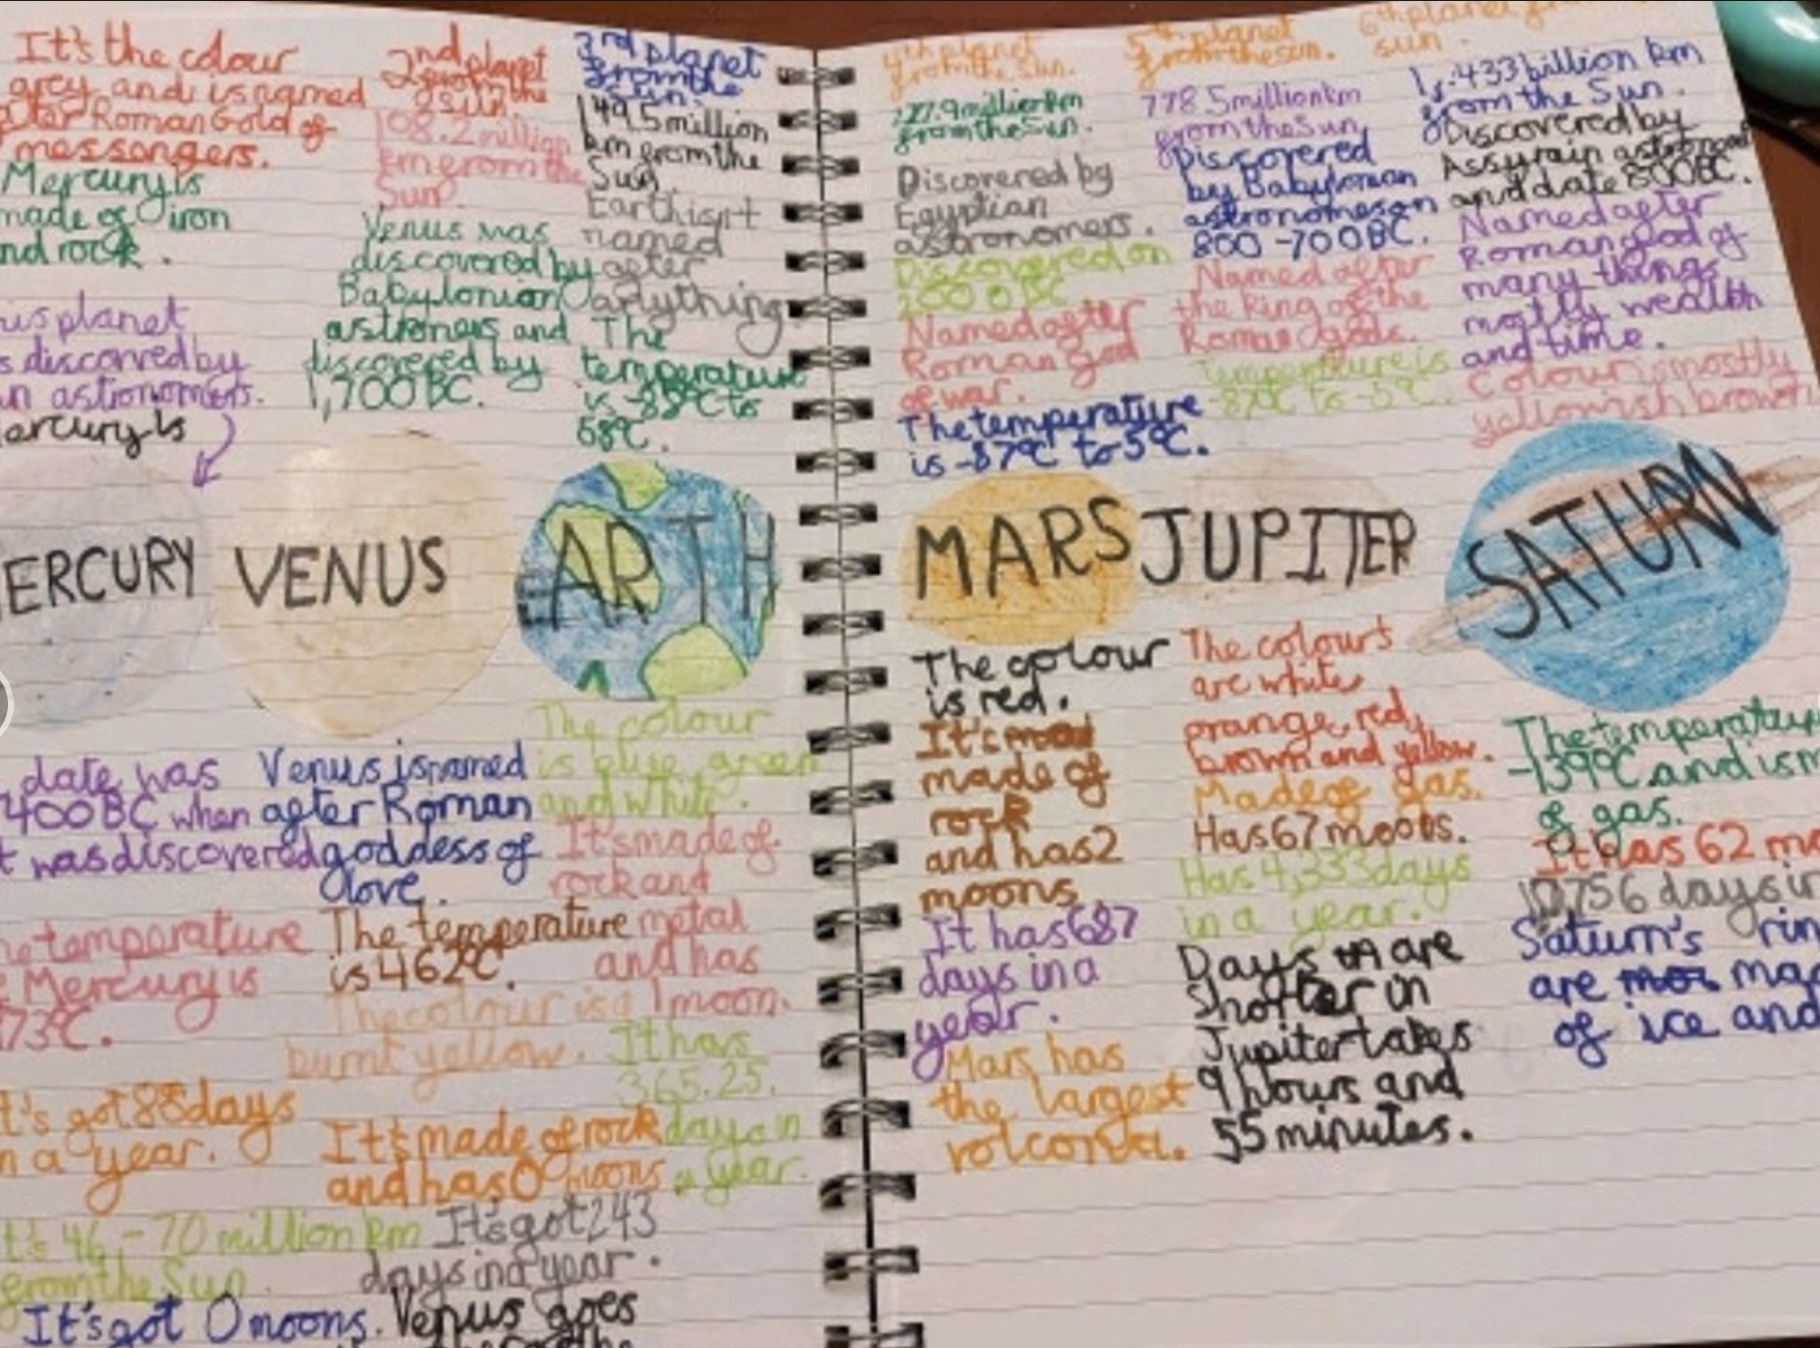 It's the colour
grey and is named
after Roman Gold of
messongers.
Mercury is
made of iron
and rock.
planet
discorved by
astronomers.
ercury is
ERCURY
date was
400 BC when
was discovered
temperature
Mercury is
73°C.
t's got 88 days
n a year.
t's 46 - 70 million km
from the Sun.
It's got 0 moons.
2nd planet
from the
sun.
108.2 million
km from the
Sun.
Venus was
discovered by
Babylonion
astromers and
discovered by
1,700 BC.
VENUS
Venus is named
after Roman
goddess of
love.
The temperature
is 462°C.
The colour is a
burnt yellow.
It's made of rock
and has 0 moons
It's got 243
days in a year.
Venus goes
3rd planet
from the
Sun.
149.5 million
km from the
Sun.
Earth isn't
named
after
anything.
The
temperature
is -88°C to
58°C.
EARTH
The colour
is blue, green
and white.
It's made of
rock and
metal
and has
1 moon.
It has
365.25
days in
a year.
4th planet
from the Sun.
227.9 million km
from the Sun.
Discovered by
Egyptian
astronomers.
Discovered on
2000 BC
Named after
Roman god
of war.
The temperature
is -87°C to 5°C.
MARS
The colour
is red.
It's
made of
rock
and has 2
moons
It has 687
days in a
year.
Mars has
the largest
volcona.
5th planet
from the sun.
778.5 million km
from the Sun
Discovered
by Babylonian
astronomes on
800 - 700 BC.
Named after
the King of the
Roman gods.
Temperature is
-87°C to -5°C.
JUPITER
The colours
are white
orange, red,
brown and yellow.
Made of gas.
Has 67 moons.
Has 4,333 days
in a year.
Days are
Shorter in
Jupiter takes
9 hours and
55 minutes.
6th planet from
sun.
1.433 billion km
from the Sun.
Discovered by
Assyrain
and date 800 BC.
Named after
Roman god of
many things
mostly wealth
and time.
Colour is mostly
yellowish brown
SATURN
The temperature
-139°C and is m
of gas.
It has 62 mo
10,756 days in
Saturn's rin
are mad
of ice and